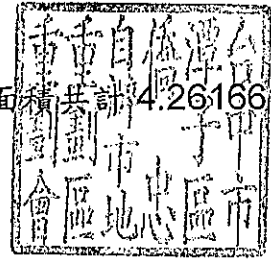 面積共計 4.26166
台中市
潭子區
僑忠
自辦市地
重劃區
重劃會